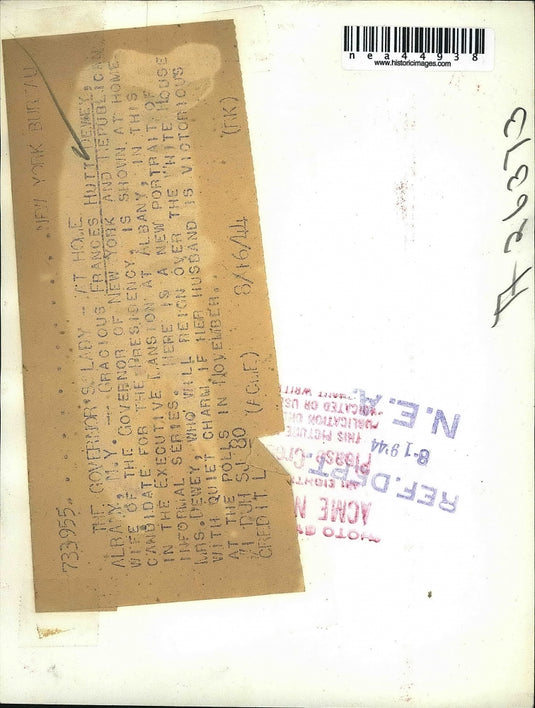 nea44938
www.historicimages.com
733955 NEW YORK BUREAU
THE GOVERNOR'S LADY -- AT HOME
ALBANY, N.Y. -- GRACIOUS FRANCES HUTT DEWEY,
WIFE OF THE GOVERNOR OF NEW YORK AND REPUBLICAN
CANDIDATE FOR THE PRESIDENCY, IS SHOWN AT HOME
IN THE EXECUTIVE MANSION AT ALBANY, IN THIS
INFORMAL SERIES. HERE IS A NEW PORTRAIT OF
MRS. DEWEY WHO WILL REIGN OVER THE WHITE HOUSE
WITH QUIET CHARM IF HER HUSBAND IS VICTORIOUS
AT THE POLLS IN NOVEMBER.
DUH SJ 80
CREDIT L (ACME) 8/16/44 (RK)
26373
N.E.A.
8-19'44
REF. DEPT.
PHOTO BY
ACME N
Please Cre
THIS PICTURE